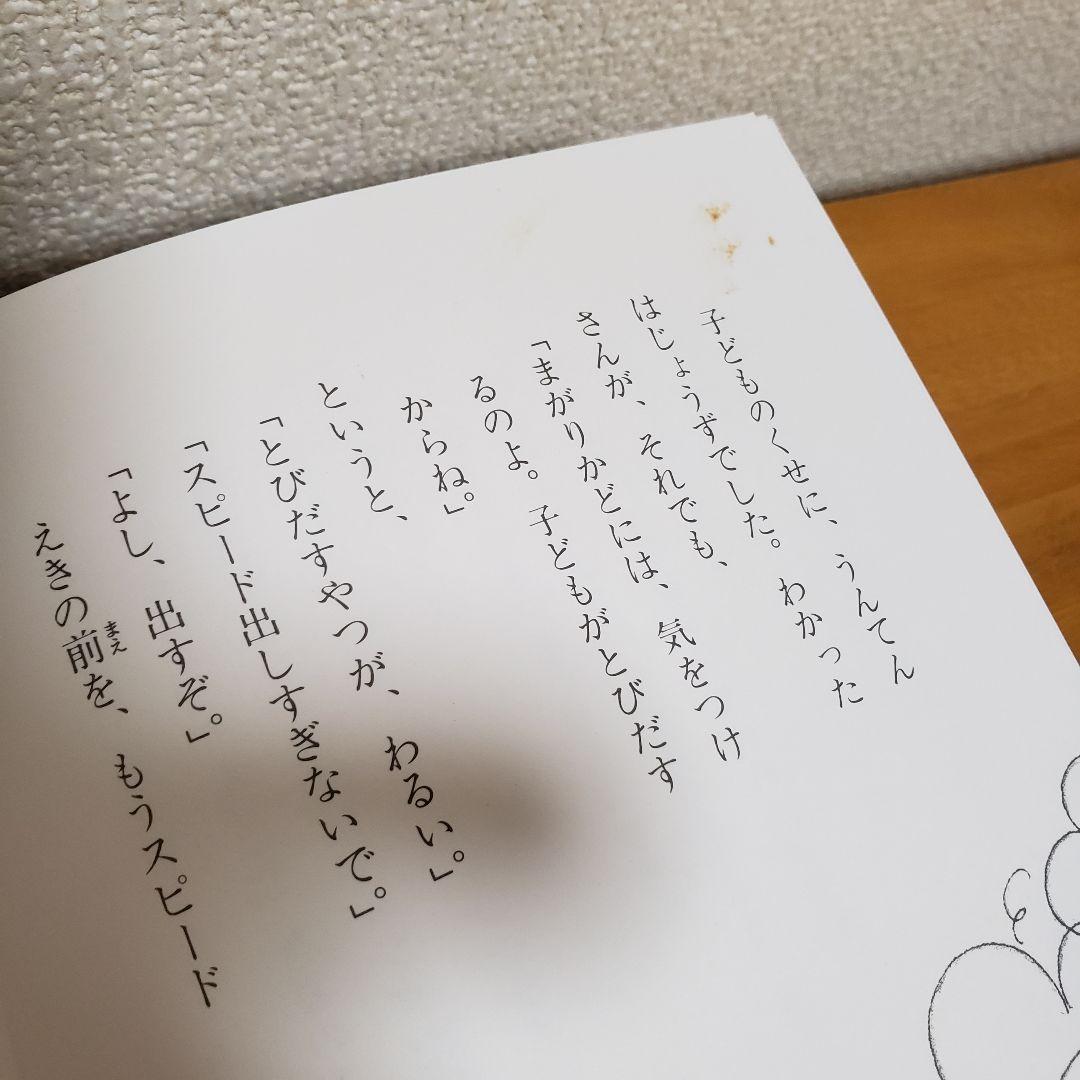 子どものくせに、うんてん
はじょうずでした。わかった
さんが、それでも、
「まがりかどには、気をつけ
るのよ。子どもがとびだす
からね。」
というと、
「とびだすやつが、わるい。」
「スピード出しすぎないで。」
「よし、出すぞ。」
えきの前を、もうスピード
まえ